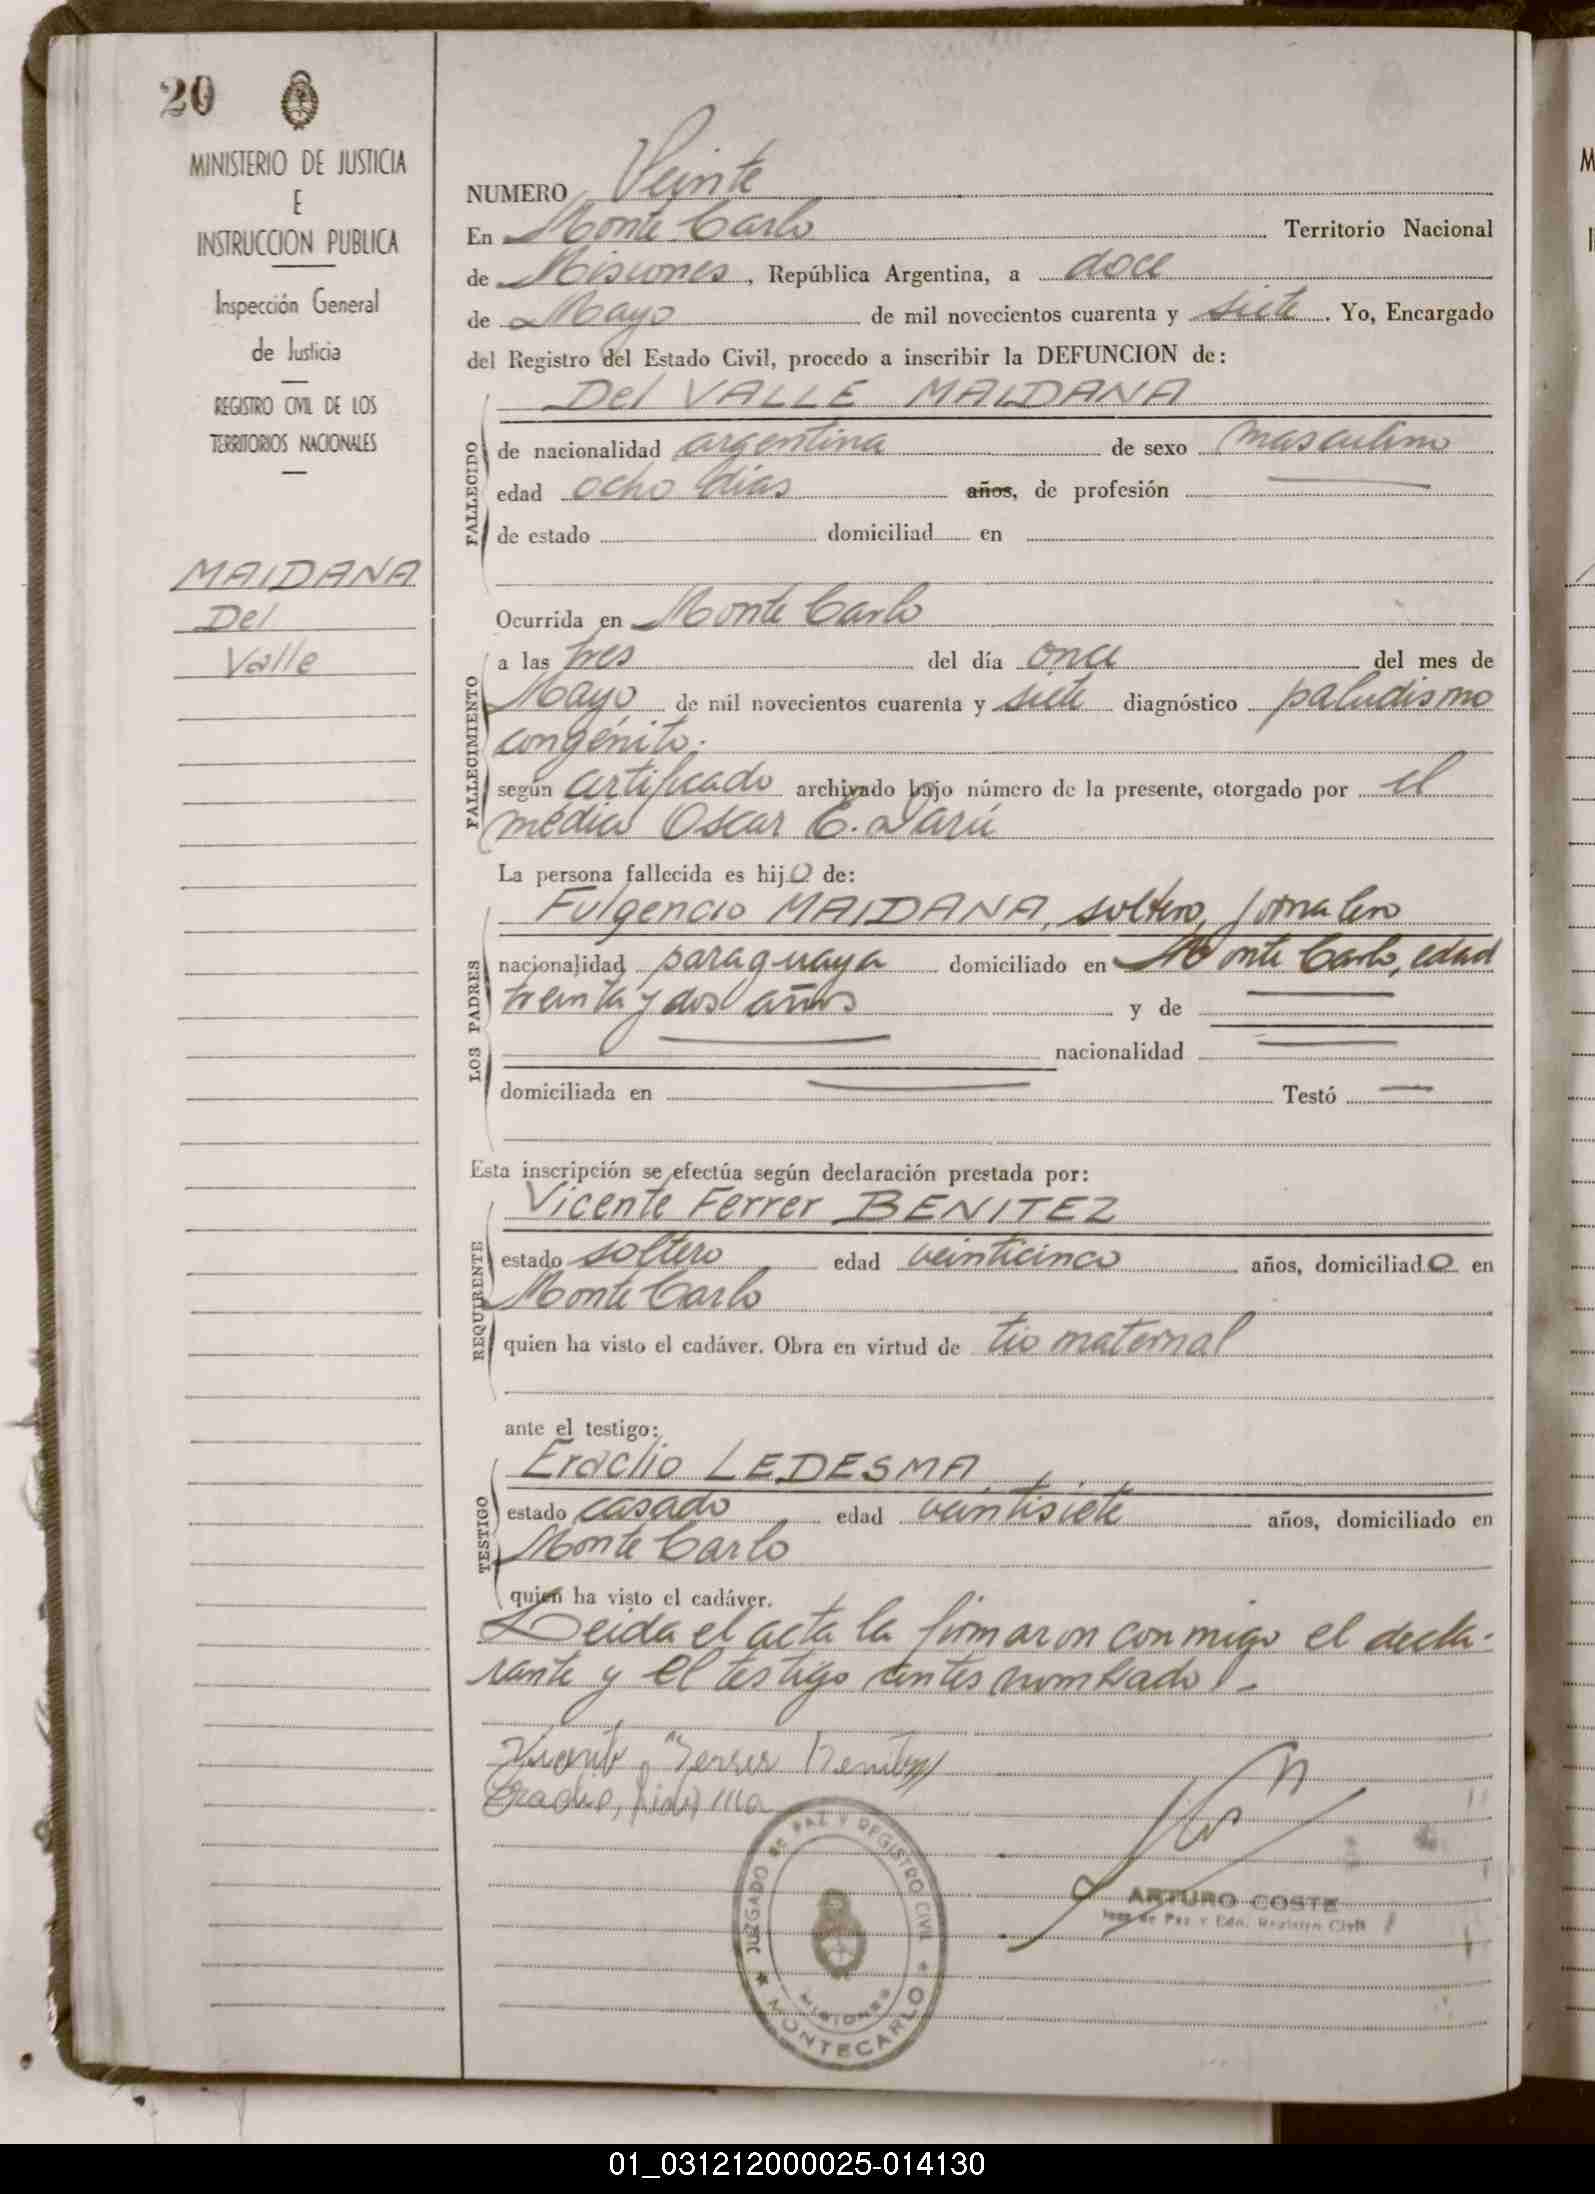 20
MINISTERIO DE JUSTICIA
E
INSTRUCCION PUBLICA
Inspección General
de Justicia
REGISTRO CIVIL DE LOS
TERRITORIOS NACIONALES
MAIDANA
Del
Valle
NUMERO Veinte
En Monte Carlo Territorio Nacional
de Misiones, República Argentina, a doce
de Mayo de mil novecientos cuarenta y siete. Yo, Encargado
del Registro del Estado Civil, procedo a inscribir la DEFUNCION de:
Del VALLE MAIDANA
FALLECIDO
de nacionalidad argentina de sexo masculino
edad ocho días años, de profesión
de estado domiciliad en
Ocurrida en Monte Carlo
FALLECIMIENTO
a las tres del día once del mes de
Mayo de mil novecientos cuarenta y siete diagnóstico paludismo
congénito.
según certificado archivado bajo número de la presente, otorgado por el
médico Oscar E. Darú
La persona fallecida es hijo de:
LOS PADRES
Fulgencio MAIDANA, soltero, jornalero
nacionalidad paraguaya domiciliado en Monte Carlo, edad
treinta y dos años y de
nacionalidad
domiciliada en Testó
Esta inscripción se efectúa según declaración prestada por:
REQUIRENTE
Vicente Ferrer BENITEZ
estado soltero edad veinticinco años, domiciliado en
Monte Carlo
quien ha visto el cadáver. Obra en virtud de tio maternal
ante el testigo:
TESTIGO
Eraclio LEDESMA
estado casado edad veintisiete años, domiciliado en
Monte Carlo
quien ha visto el cadáver.
Leida el acta la firmaron conmigo el decla-
rante y el testigo antes nombrado.-
Vicente Ferrer Benitez
Eraclio Ledesma
JUZGADO DE PAZ Y REGISTRO CIVIL
MISIONES
MONTECARLO
ARTURO COSTE
Juez de Paz y Edo. Registro Civil
01_031212000025-014130